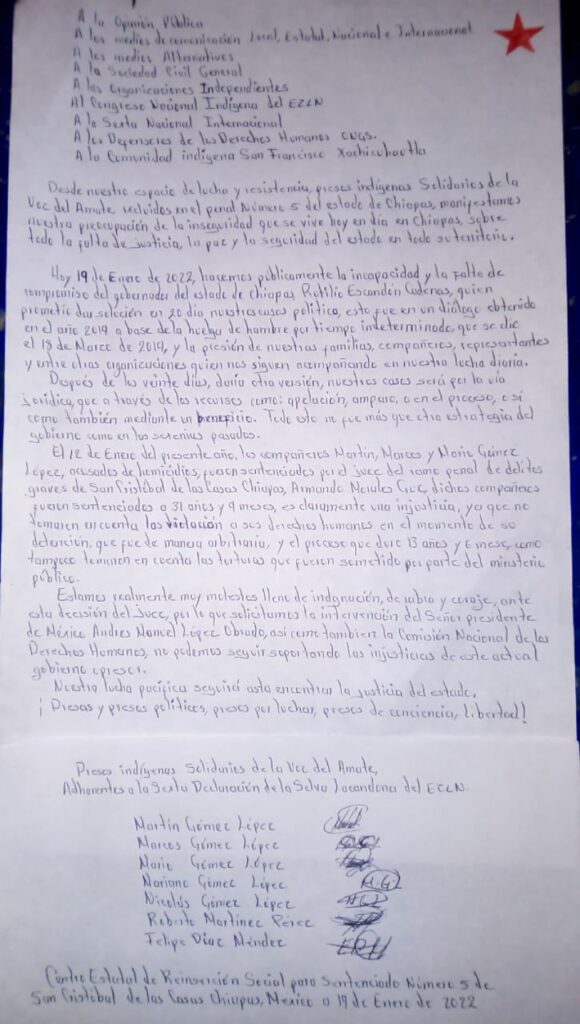 A la Opinión Pública
A los medios de comunicación Local, Estatal, Nacional e Internacional
A los medios Alternativos
A la Sociedad Civil General
A las Organizaciones Independientes
Al Congreso Nacional Indígena del EZLN
A la Sexta Nacional Internacional
A los Defensores de los Derechos Humanos ONGS.
A la Comunidad indígena San Francisco Xochicuautla
Desde nuestro espacio de lucha y resistencia, presos indígenas Solidarios de la
Voz del Amate, recluidos en el penal Número 5 del estado de Chiapas, manifestamos
nuestra preocupación de la inseguridad que se vive hoy en día en Chiapas, sobre
todo la falta de justicia, la paz y la seguridad del estado en todo su territorio.
Hoy 19 de Enero de 2022, hacemos públicamente la incapacidad y la falta de
compromiso del gobernador del estado de Chiapas, Rutilio Escandón Cadenas, quien
prometió dar solución en 20 día nuestros casos político, esto fue en un diálogo obtenido
en el año 2019 a base de la huelga de hambre por tiempo indeterminado, que se dio
el 18 de Marzo de 2019, y la presión de nuestras familias, compañeros, representantes
y entre otras organizaciones quien nos siguen acompañando en nuestra lucha diaria.
Después de los veinte días, dando otra versión, nuestros casos será por la vía
jurídica, que a través de los recursos como: apelación, amparo, o en el proceso, o así
como también mediante un beneficio. Todo esto no fue más que otra estrategia del
gobierno como en los sexenios pasados.
El 12 de Enero del presente año, los compañeros Martín, Marcos y Mario Gómez
López, acusados de homicidios, fueron sentenciados por el juez del ramo penal de delitos
graves de San Cristóbal de las Casas Chiapas, Armando Morales dichos compañeros
fueron sentenciados a 31 años y 9 meses, es claramente una injusticia, ya que no
tomaron en cuenta las violación a sus derechos humanos en el momento de su
detención, que fue de manera arbitraria, y el proceso que duro 13 años y 6 mese, como
tampoco tomaron en cuenta las torturas que fueron sometido por parte del ministerio
público.
Estamos realmente muy molestos lleno de indignación, de rabia y coraje, ante
esta decisión del Juez, por lo que solicitamos la intervención del Señor presidente
de México Andres Manuel López Obrado, así como tambien la Comisión Nacional de los
Derechos Humanos, no podemos seguir soportando las injusticias de este actual
gobierno opresor.
Nuestra lucha pacífica seguirá asta encontrar la justicia del estado,
¡Presas y presos políticos, presos por luchar, presos de conciencia, Libertad!
Presos indígenas Solidarios de la Voz del Amate,
Adherentes a la Sexta Declaración de la Selva Lacandona del EZLN.
Martín Gómez López
Marcos Gómez López
Mario Gómez López
Mariano Gómez López M.G.L
Nicolás Gómez López NGL
Roberto Martínez Pérez
Felipe Díaz Méndez
Centro Estatal de Reinserción Social para Sentenciado Número 5 de
San Cristóbal de las Casas Chiapas, Mexico a 19 de Enero de 2022